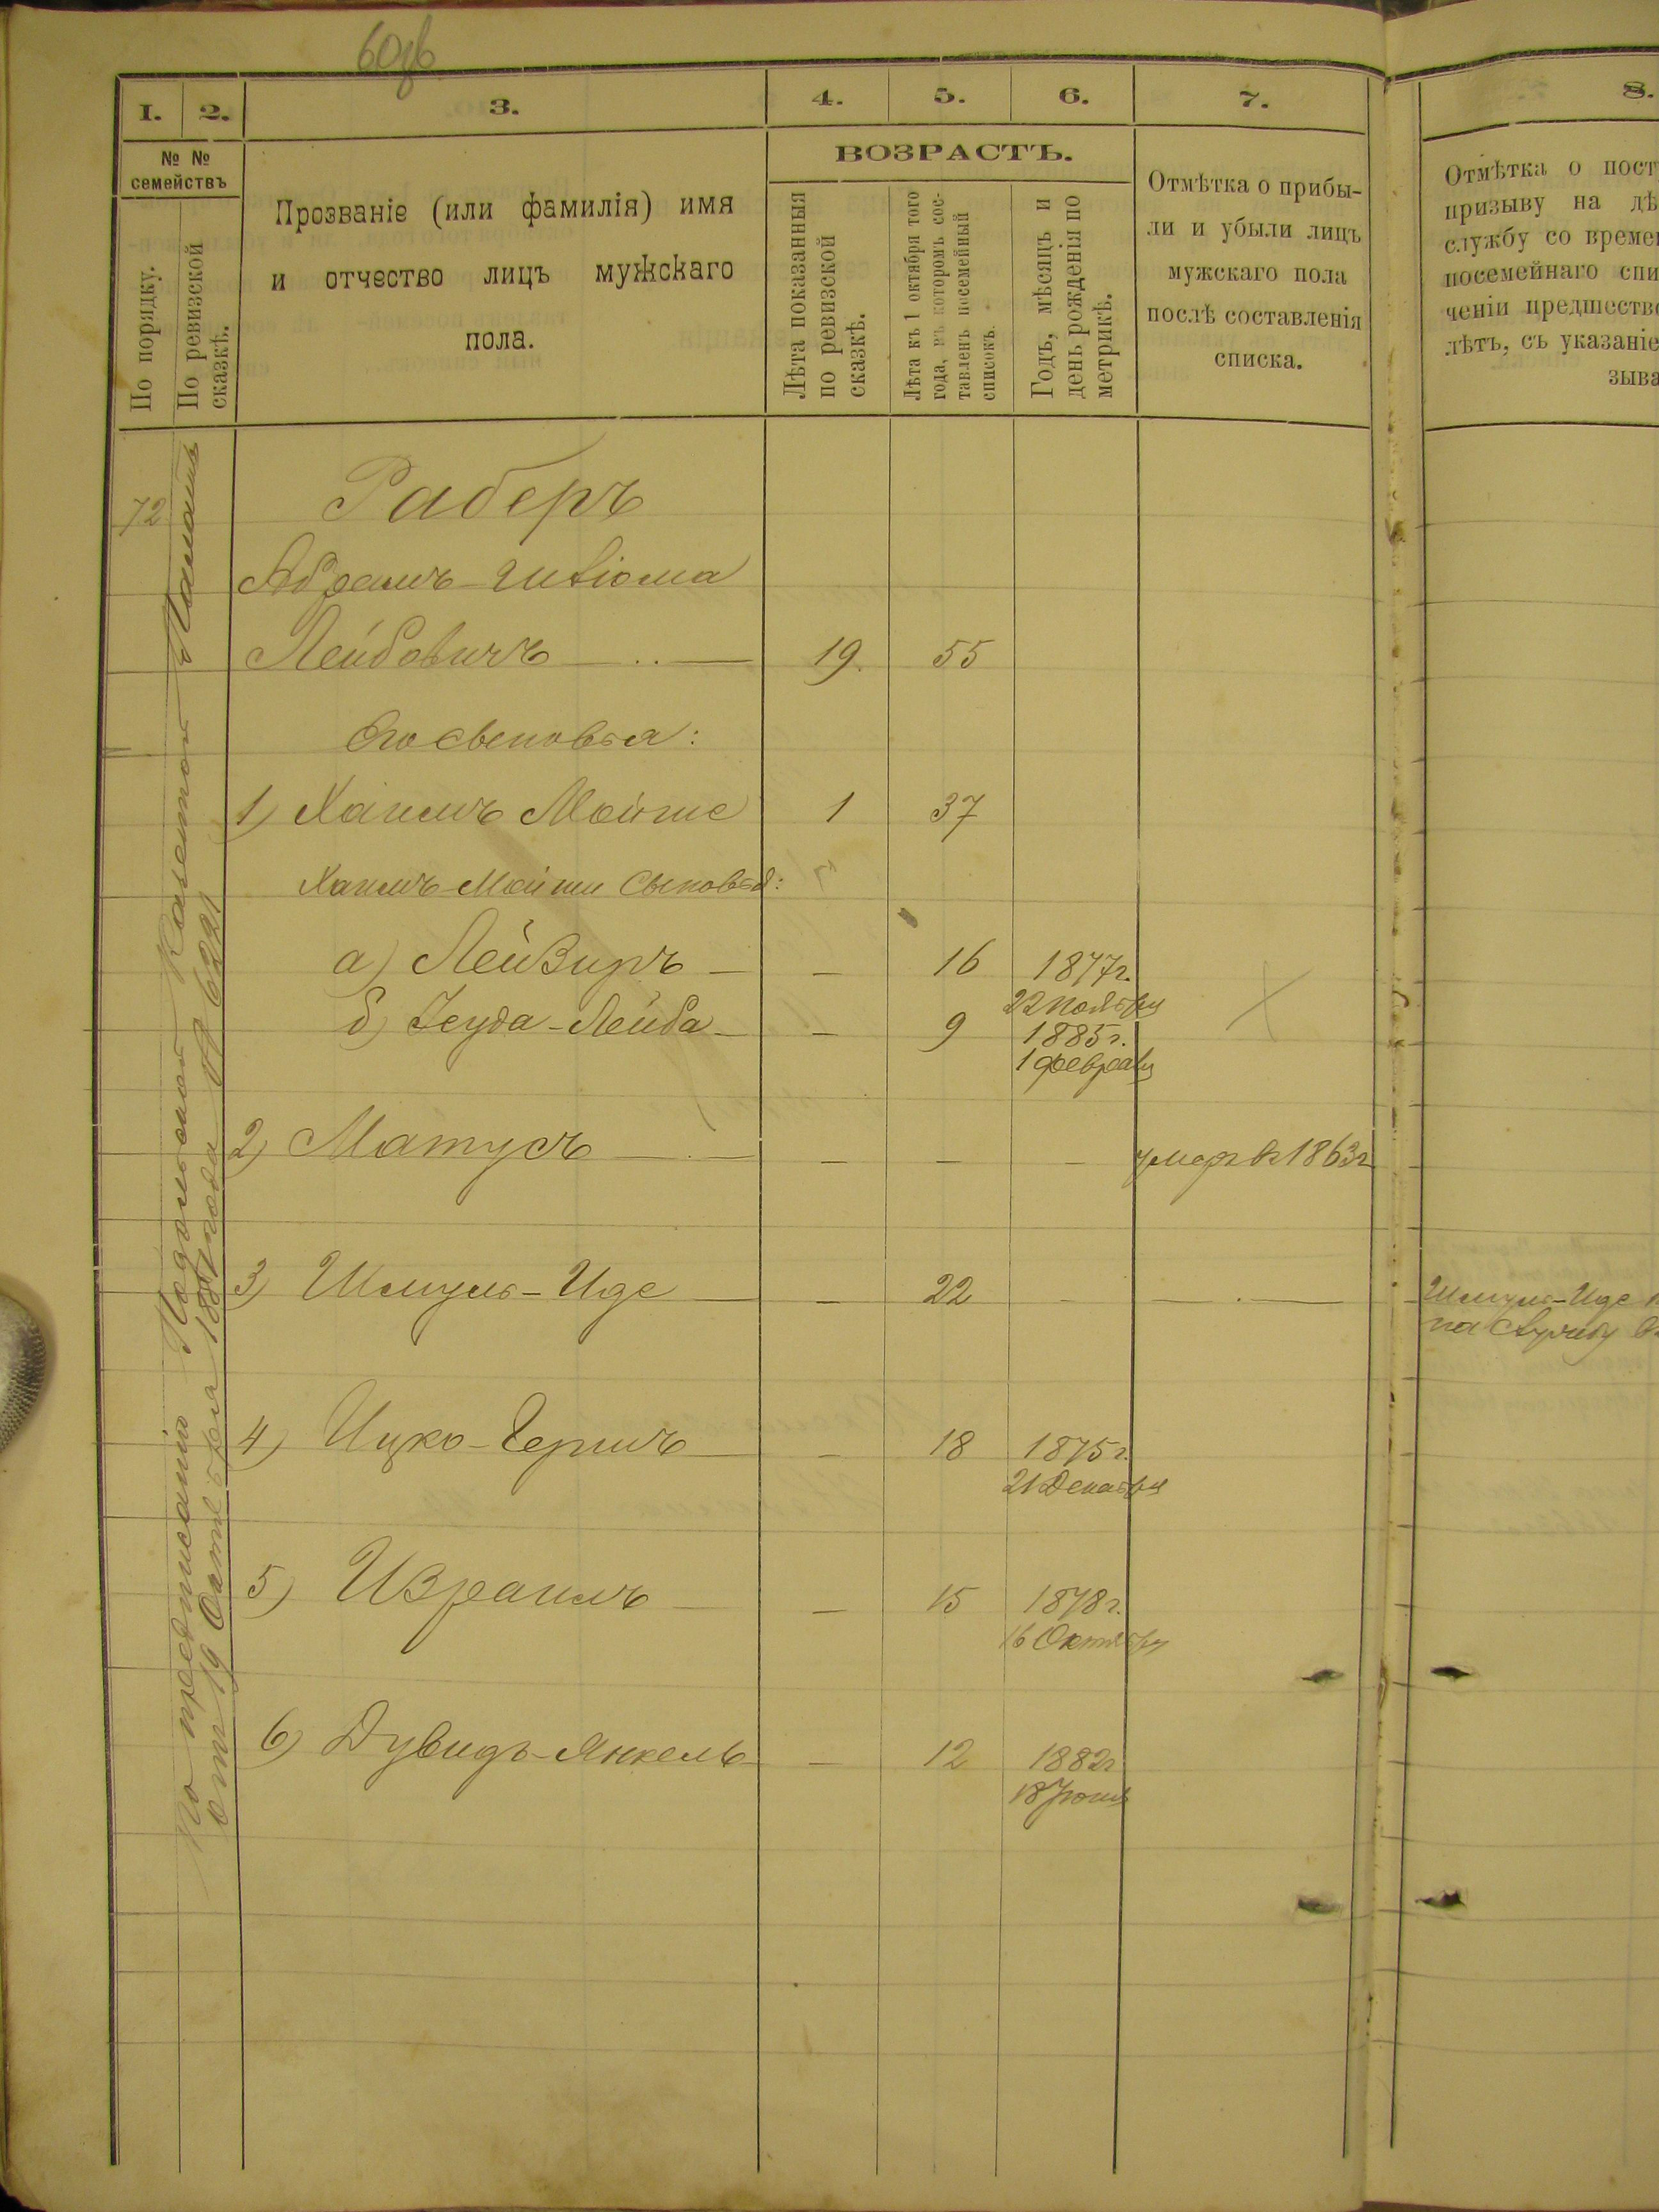 60 об
1. 2. 3. 4. 5. 6. 7. 8.
№ № семействъ
По порядку.
По ревизской сказкѣ.
Прозваніе (или фамилія) имя
и отчество лицъ мужскаго
пола.
ВОЗРАСТЪ.
Лѣта показанныя
по ревизской
сказкѣ.
Лѣта къ 1 октября того
года, въ которомъ сос-
тавленъ посемейный
списокъ.
Годъ, мѣсяцъ и
день рожденія по
метрикѣ.
Отмѣтка о прибы-
ли и убыли лицъ
мужскаго пола
послѣ составленія
списка.
Отмѣтка о пост
призыву на дѣ
службу со време
посемейнаго спи
ченіи предшеств
лѣтъ, съ указаніе
зыва
По предписанію Подольской Казенной Палаты
отъ 19 Октября 1887 года № 6221
72 Раберъ
Абрамъ-Шліома
Лейбовичъ 19. 55
Его сыновья:
1) Хаимъ Мойше 1 37
Хаимъ-Мойши Сыновья:
а) Лейзиръ — — 16 1877г.
22 Ноября
б) Іеуда-Лейба — — 9 1885г.
1 февраля
2) Матусъ — — — — умеръ въ 1863г
3) Шмуль-Иде — — 22 — — Шмуль-Иде
на службу
4) Ицко-Гершъ — — 18 1875г.
21 Декабря
5) Израиль — — 15 1878г.
16 Октября
6) Дувидъ-Янкель — — 12 1882г
18 Іюня